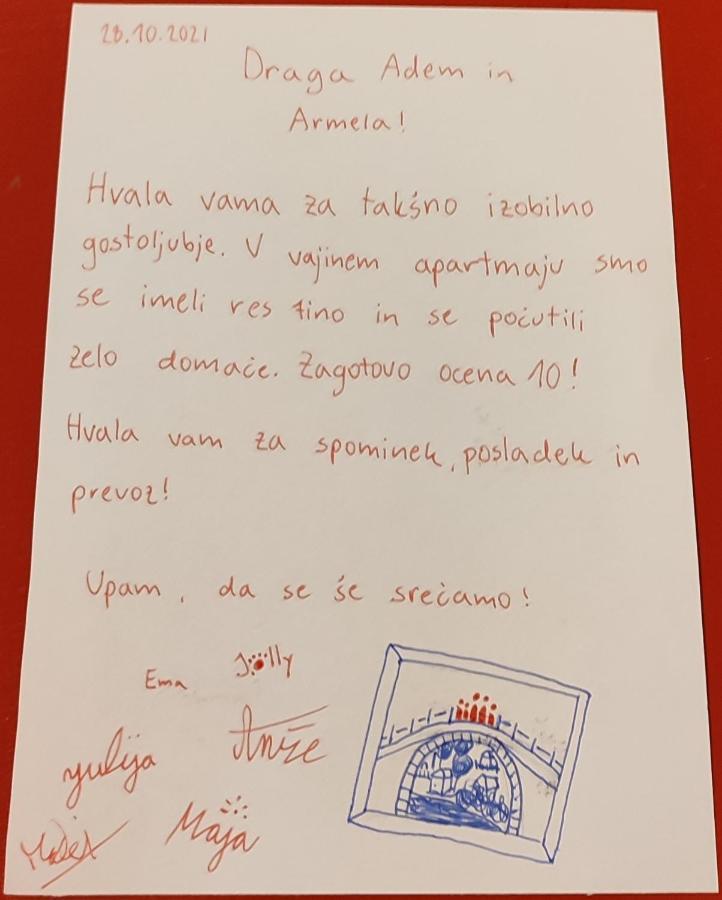 28.10.2021
Draga Adem in
Armela!
Hvala vama za takšno izobilno
gostoljubje. V vajinem apartmaju smo
se imeli res fino in se počutili
zelo domače. Zagotovo ocena 10!
Hvala vam za spominek, posladek in
prevoz!
Upam, da se še srečamo!
Jolly
Ema
Anže
yulija
Maja